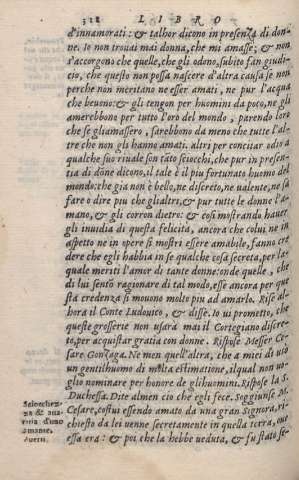 328 LIBRO
d'innamorati: & talhor dicono in presenza di don-
ne. Io non trouai mai donna, che mi amasse; & non
s'accorgono che quelle, che gli odono, subito fan giudi-
cio, che questo non possa nascere d'altra causa se non
perche non meritano ne esser amati, ne pur l'acqua
che beuono: & gli tengon per huomini da poco, ne gli
amerebbono per tutto l'oro del mondo, parendo loro
che se gli amassero, sarebbono da meno che tutte l'al-
tre che non gli hanno amati. altri per conciitar odio a
qualche suo riuale son tāto sciocchi, che pur in presen-
tia di dōne dicono, il tale è il piu fortunato huomo del
mondo: che gia non è bello, ne discreto, ne ualente, ne sa
fare o dire piu che gli altri, & pur tutte le donne l'a-
mano, & gli corron dietro: & cosi mostrando hauer
gli inuidia di questa felicità, ancora che colui ne in
aspetto ne in opere si mostri essere amabile, fanno cre
dere che egli habbia in se qualche cosa secreta, per la-
quale meriti l'amor di tante donne: onde quelle, che
di lui sentō ragionare di tal modo, esse ancora per que
sta credenza si mouono molto piu ad amarlo. Rise al-
hora il Conte Ludouico, & disse. Io ui prometto, che
queste grosserie non usarà mai il Cortegiano discre-
to, per acquistar gratia con donne. Rispose Messer Ce-
sare Gonzaga. Ne men quell'altra, che a miei dì usò
un gentilhuomo di molta estimatione, ilqual non uo-
glio nominare per honore de gli huomini. Rispose la S.
Duchessa. Dite almen ciò che egli fece. Soggiunse M.
Cesare, costui essendo amato da una gran Signora, ri-
chiesto da lei uenne secretamente in quella terra, oue
essa era: & poi che la hebbe ueduta, & fu stato se-
Sciocchez-
za &
d'uno
amante.